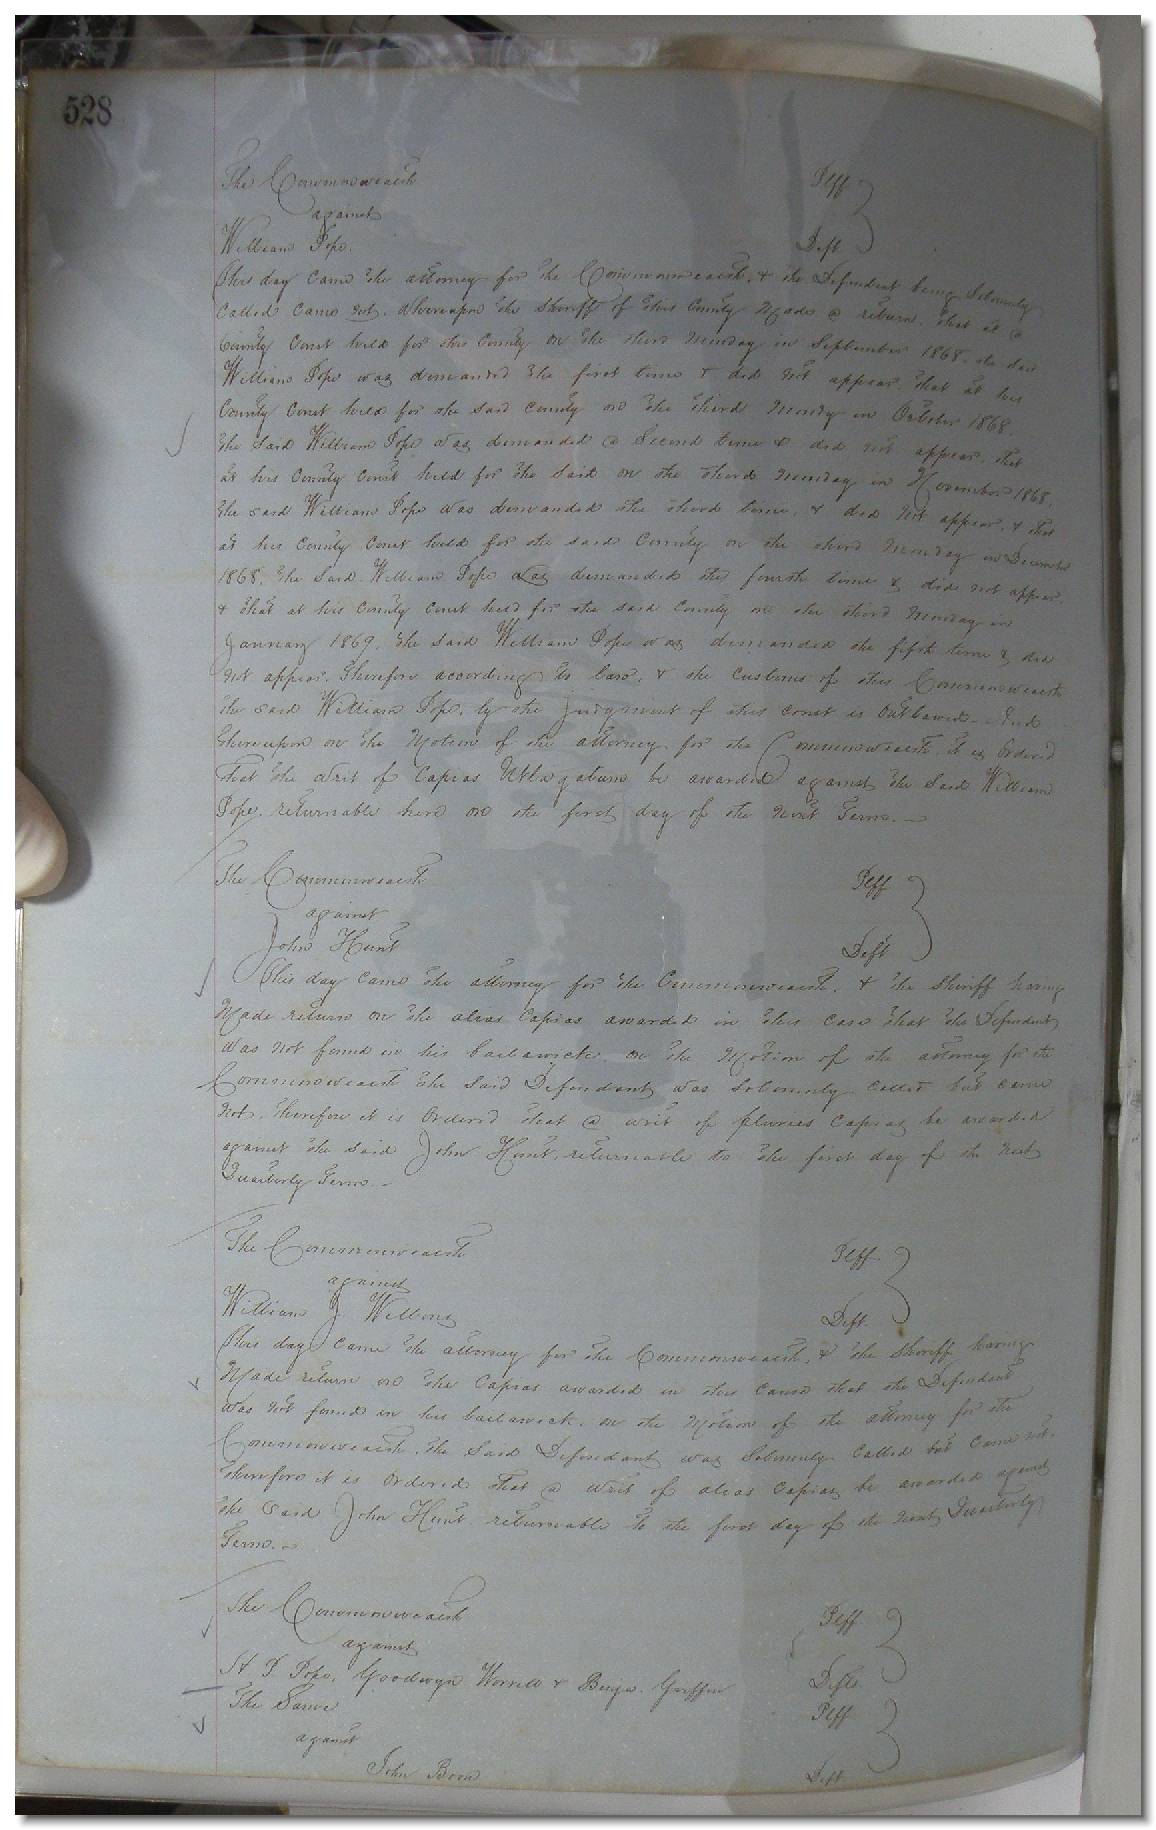 528
The Commonwealth Plff
against
William Pope. Deft
This day came the attorney for the Commonwealth, & the Defendant being Solemnly
Called came not. Whereupon the Sheriff of this County Made a return, that at a
County Court held for this County on the third Monday in September 1868. the said
William Pope was demanded the first time & did not appear. that at his
County Court held for the said County on the third Monday in October 1868.
the said William Pope was demanded a Second time & did not appear. that
at his County Court held for the said on the third Monday in November 1868.
the said William Pope was demanded the third time, & did not appear, & that
at his County Court held for the said County on the third Monday in December
1868. the said William Pope was demanded the fourth time & did not appear.
& that at his County Court held for the said County on the third Monday in
January 1869. the said William Pope was demanded the fifth time & did
not appear. Therefore according to law, & the Customs of this Commonwealth
the said William Pope, by the judgment of this Court is Outlawed. And
thereupon on the Motion of the attorney for the Commonwealth, it is Ordered
that the writ of Capias Utlagatum be awarded against the said William
Pope, returnable here on the first day of the next Term.—
The Commonwealth Plff
against
John Hunt Deft
This day came the attorney for the Commonwealth, & the Sheriff having
Made return on the alias Capias awarded in this case that the Defendant
was not found in his bailiwick. on the Motion of the attorney for the
Commonwealth the said Defendant was Solemnly Called but came
not. Therefore it is Ordered that a writ of pluries Capias be awarded
against the said John Hunt, returnable to the first day of the next
Quarterly Term.—
The Commonwealth Plff
against
William J Wellons Deft.
This day came the attorney for the Commonwealth, & the Sheriff having
Made return on the Capias awarded in this cause that the Defendant
was not found in his bailiwick. on the Motion of the attorney for the
Commonwealth, the said Defendant was Solemnly Called but came not.
Therefore it is Ordered that a writ of alias Capias be awarded against
the said John Hunt returnable to the first day of the next Quarterly
Term.—
The Commonwealth Plff
against
Pope, Goodwyn Worrell & Benja. Griffin Defts
The Same Plff
against
John Boon Deft